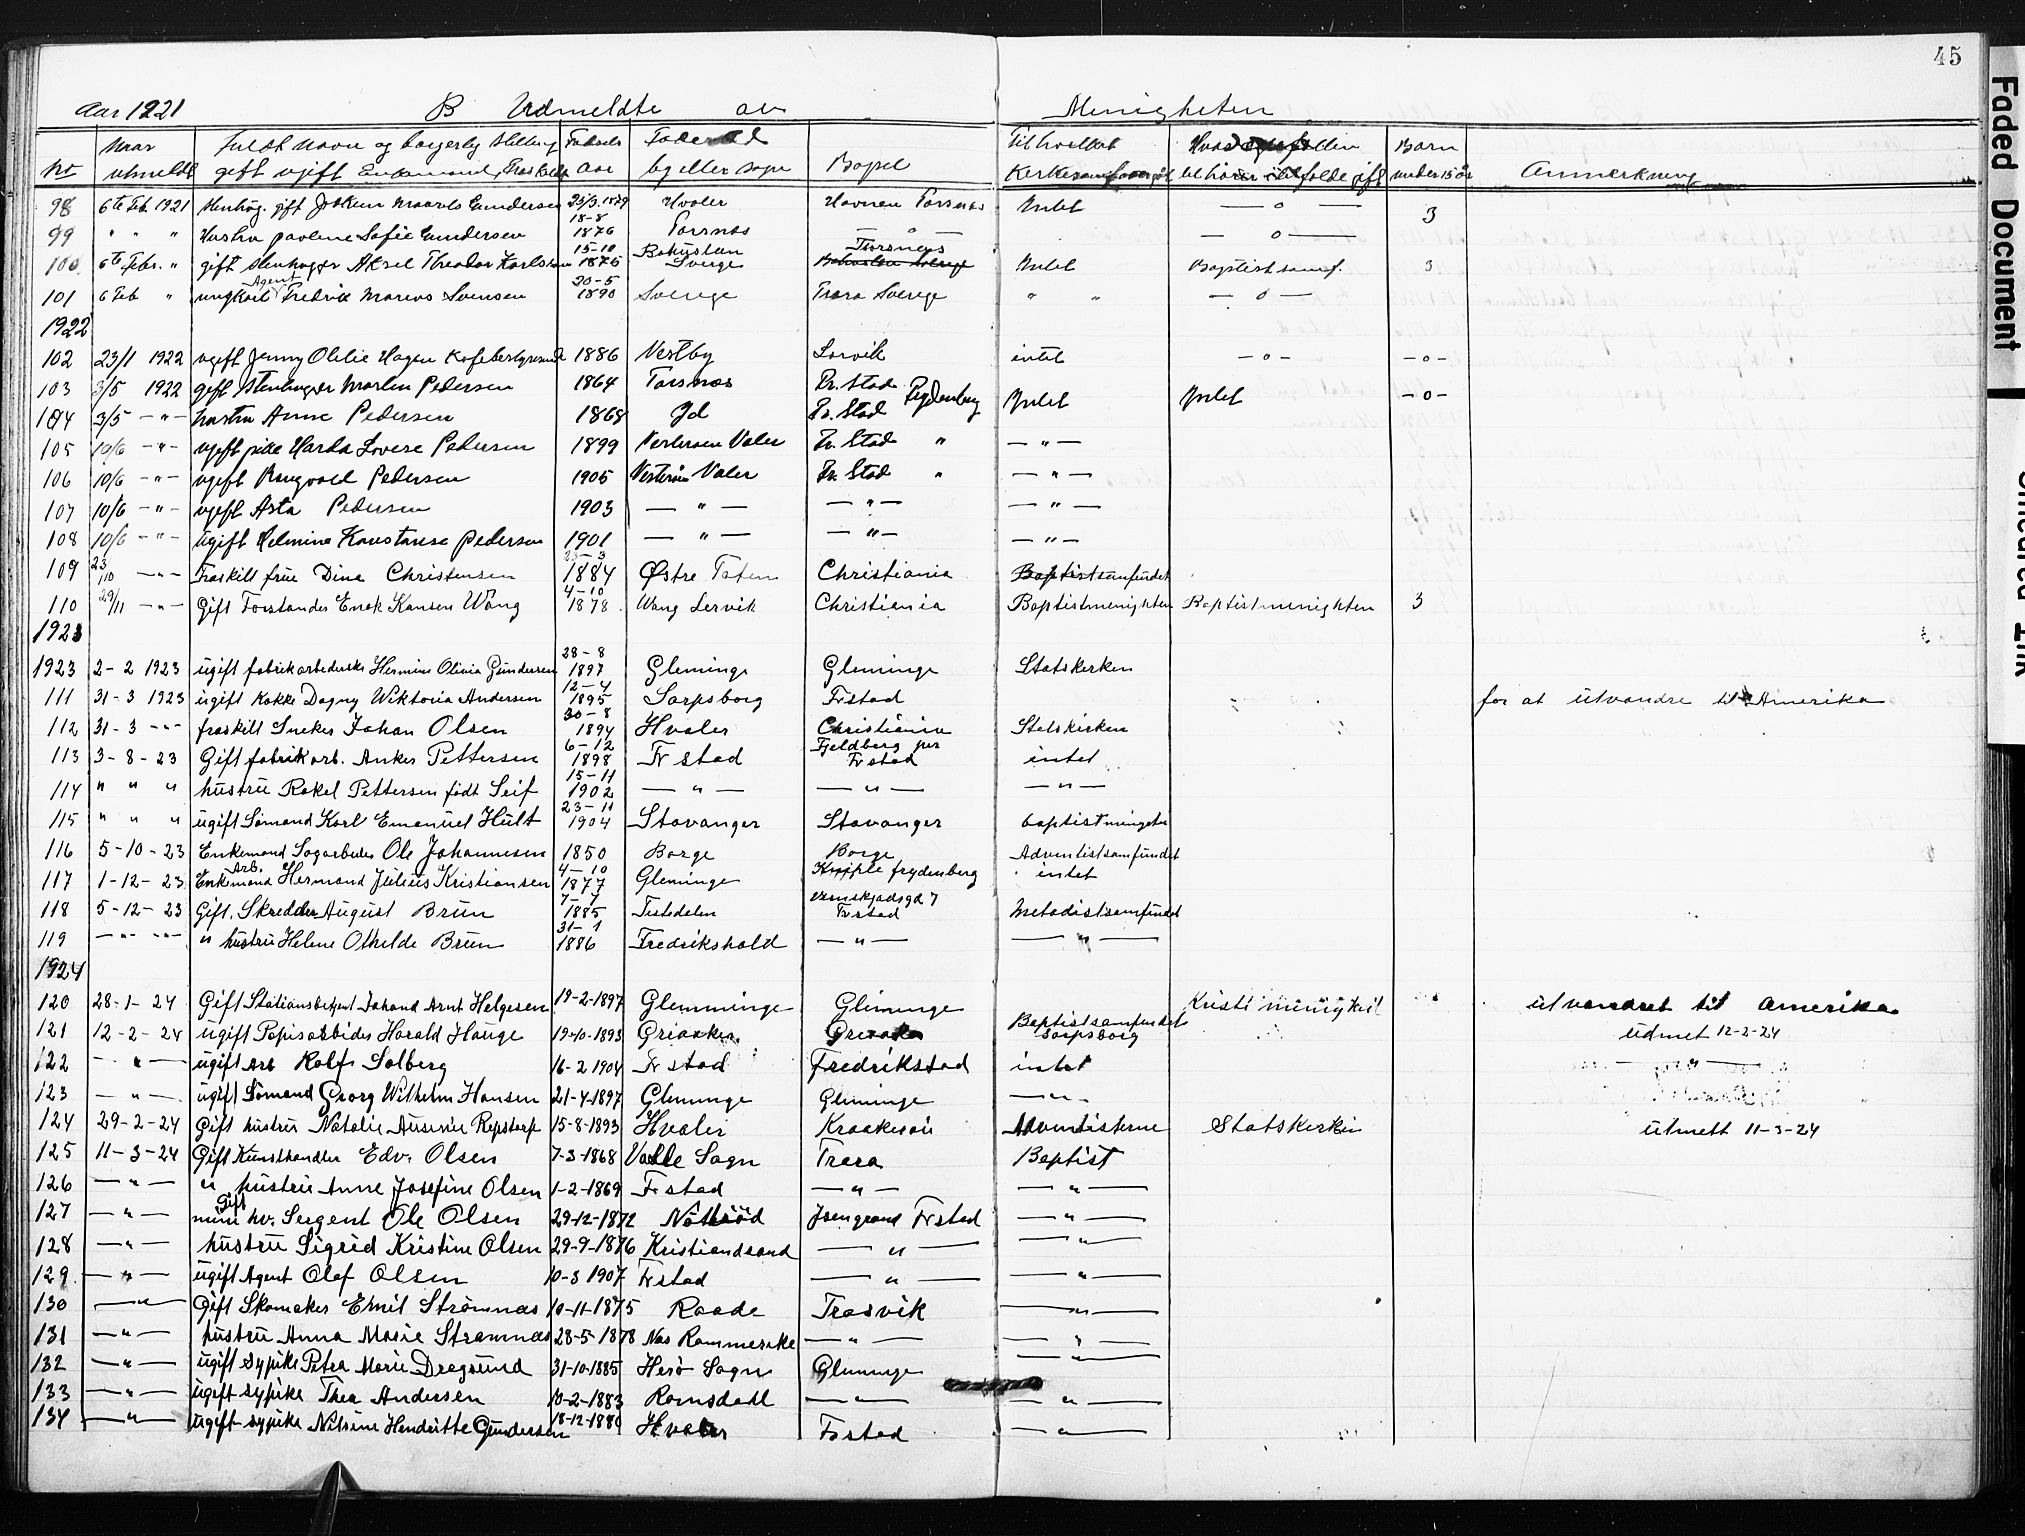 45
Aar 1921 B Udmeldte av Menigheten
Nr Naar utmeldt Fuldt Navn og borgerlig Stilling gift ugift Enkemand, Fraskilt Fødsels aar Fødested by eller sogn Bopel Til hvilket Kirkesamfund gåt Hvad ektefellen tilhører i tilfelde gift Barn under 15 år Anmerkning
98 6te Feb. 1921 Stenhug. gift Jokum Maarels Gundersen 23/3 1879 Hvaler Havnen Torsnes Intet — o — 3
99 " " " Hustru Paoline Sofie Gundersen 18-8 1876 Torsnes — o — — o —
100 6te Febr. " gift Stenhugger Aksel Theodor Karlsson 15-10 1876 Bohuslän Sverge Torsnæs Intet Baptist samf. 3
101 6 Feb " ungkarl Agent Fredrik Marius Svensen 20-5 1890 Sverige Trara Sverige " " — o —
1922
102 23/1 1922 ugift Jenny Otilie Hagen Kafebestyrerinde 1886 Vestby Larvik intet — o — — o —
103 3/5 1922 gift Stenhugger Martin Pedersen 1864 Torsnæs Fr. Stad Frydenberg Intet Intet — o —
104 3/5 — " — hustru Anne Pedersen 1868 Id Fr. Stad
105 10/6 — " — ugift pike Harda Lovise Pedersen 1899 Vesterøen Valer Fr. Stad " — " —
106 10/6 — " — ugift Rangvald Pedersen 1905 Vesterøen Valer Fr. Stad " — " —
107 10/6 — " — ugift Asta Pedersen 1903 — " — — " — — " —
108 10/6 — " — ugift Helmina Konstanse Pedersen 1901 — " — — " — — " —
109 23/10 — " — Fraskilt frue Dina Christensen 23-3 1884 Østre Toten Christiania Baptistsamfundet
110 29/11 — " — Gift Forstander Enok Hansen Wang 4-10 1878 Wang Lervik Christiania Baptistmenigheten Baptistmenigheten 3
1923
1923 2-2 1923 ugift fabrikarbederske Hermine Olivia Gundersen 28-8 1897 Gleminge Gleminge Statskerken
111 31-3 1923 ugift Kokke Dagny Wiktoria Andersen 12-4 1895 Sarpsborg Frstad for at utvandre til Amerika
112 31-3 — " — fraskilt Sneker Johan Olsen 30-8 1894 Hvaler Christiania Statskirken
113 3-8-23 Gift fabrikarb. Anker Pettersen 6-12 1898 Fr stad Fjeldberg per Fr stad intet
114 " " " hustru Rakel Pettersen født Seif 15-11 1902 — " — — " — — " —
115 " " " ugift Sømand Karl Emanuel Hult 23-11 1904 Stavanger Stavanger baptistmenigeten
116 5-10-23 Enkemand Sagarbeder Ole Johannesen 1850 Borge Borge Adventistsamfundet
117 1-12-23 Enkemand Arb. Hermand Julius Kristiansen 4-10 1877 Gleminge Kniple frydenberg intet
118 5-12-23 Gift. Skredder August Brun 7-7 1885 Tistedalen Frstad Metodistsamfundet
119 — " — " — " hustru Helene Othilde Brun 31-1 1886 Fredrikshald — " — — " —
1924
120 28-1-24 Gift Stationsbetjent Johand Arnt Helgesen 19-2-1897 Glemminge Gleminge Kristi menighet utvandret til Amerika
121 12-2-24 ugift Papirarbider Harald Hauge 19-10-1893 Griaaker Greaaker Baptistsamfundet Sarpsborg udmet 12-2-24
122 — " — ugift Arb Rolf Solberg 16-2 1904 Fr stad Fredrikstad intet — " —
123 — " — ugift Sømand Georg Wilhelm Hansen 21-4-1897 Gleminge Gleminge — " —
124 29-2-24 Gift hustru Natalie Ausenie Repstorp 15-8-1893 Hvaler Kraakerøi Adventisterne Statskerken utmett 11-3-24
125 11-3-24 Gift Kunsthandler Edv. Olsen 7-3-1868 Valle Sogn Trara Baptist
126 — " — " hustru Anne Josefine Olsen 1-2-1869 Fr stad — " — — " —
127 — " — Gift mine hv. Sergent Ole Olsen 29-12-1872 Nøtterød Isengrand Fr stad — " —
128 — " — hustru Sigrid Kristine Olsen 29-9-1876 Kristiandsand — " — — " —
129 — " — ugift Agent Olaf Olsen 10-3 1907 Fr stad — " — — " —
130 — " — Gift Skomaker Emil Strømnæs 10-11-1875 Raade Trosvik — " —
131 — " — hustru Anna Marie Strømnæs 28-5-1878 Nas Rommerike — " — — " —
132 — " — ugift sypike Petra Marie Dragsund 31-10-1885 Herø Sogn Gleminge — " —
133 — " — ugift sypike Thea Andersen 10-2-1883 Romsdahl — " — — " —
134 — " — ugift sypike Nilsine Hendritte Gundersen 18-12-1880 Hvaler Frstad — " —
Faded Document